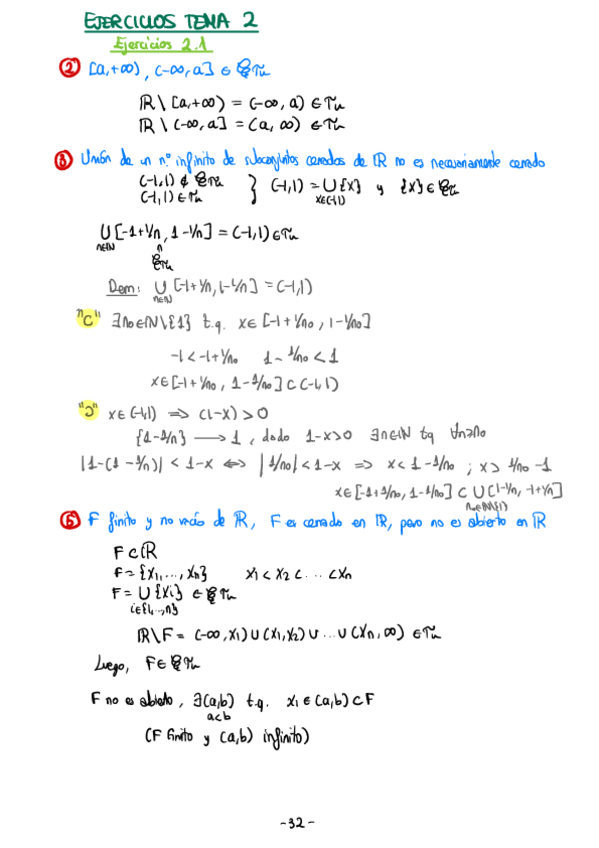 EJERCICIOS TEMA 2
Ejercicios 2.1
② [a,+∞), (-∞,a] ∈ 𝒞Tu
ℝ\[a,+∞) = (-∞,a) ∈ Tu
ℝ\(-∞,a] = (a,∞) ∈ Tu
③ Unión de un nº infinito de subconjuntos cerrados de ℝ no es necesariamente cerrado
(-1,1) ∉ 𝒞Tu
(-1,1) ∈ Tu } (-1,1) = ∪{x} y {x} ∈ 𝒞Tu
x∈(-1,1)
∪[-1+1/n, 1-1/n] = (-1,1) ∈ Tu
n∈ℕ
𝒞Tu
Dem: ∪[-1+1/n, 1-1/n] = (-1,1)
n∈ℕ
"⊂" ∃n₀∈ℕ\{1} t.q. x∈[-1+1/n₀, 1-1/n₀]
-1<-1+1/n₀ 1-1/n₀<1
x∈[-1+1/n₀, 1-1/n₀] ⊂ (-1,1)
"⊃" x∈(-1,1) ⇒ (1-x)>0
{1-1/n} → 1, dado 1-x>0 ∃n∈ℕ tq ∀n≥n₀
|1-(1-1/n)| < 1-x ⇔ |1/n₀|<1-x ⇒ x<1-1/n₀ ; x>1/n₀-1
x∈[-1+1/n₀, 1-1/n₀] ⊂ ∪[1-1/n, -1+1/n]
n₀∈ℕ\{1}
⑤ F finito y no vacío de ℝ, F es cerrado en ℝ, pero no es abierto en ℝ
F⊂ℝ
F={x₁,...,xn} x₁<x₂<...<xn
F=∪{xi} ∈ 𝒞Tu
i∈{1,...,n}
ℝ\F = (-∞,x₁)∪(x₁,x₂)∪...∪(xn,∞) ∈ Tu
Luego, F∈𝒞Tu
F no es abierto, ∃(a,b) t.q. x₁∈(a,b)⊂F
a<b
(F finito y (a,b) infinito)
-32-